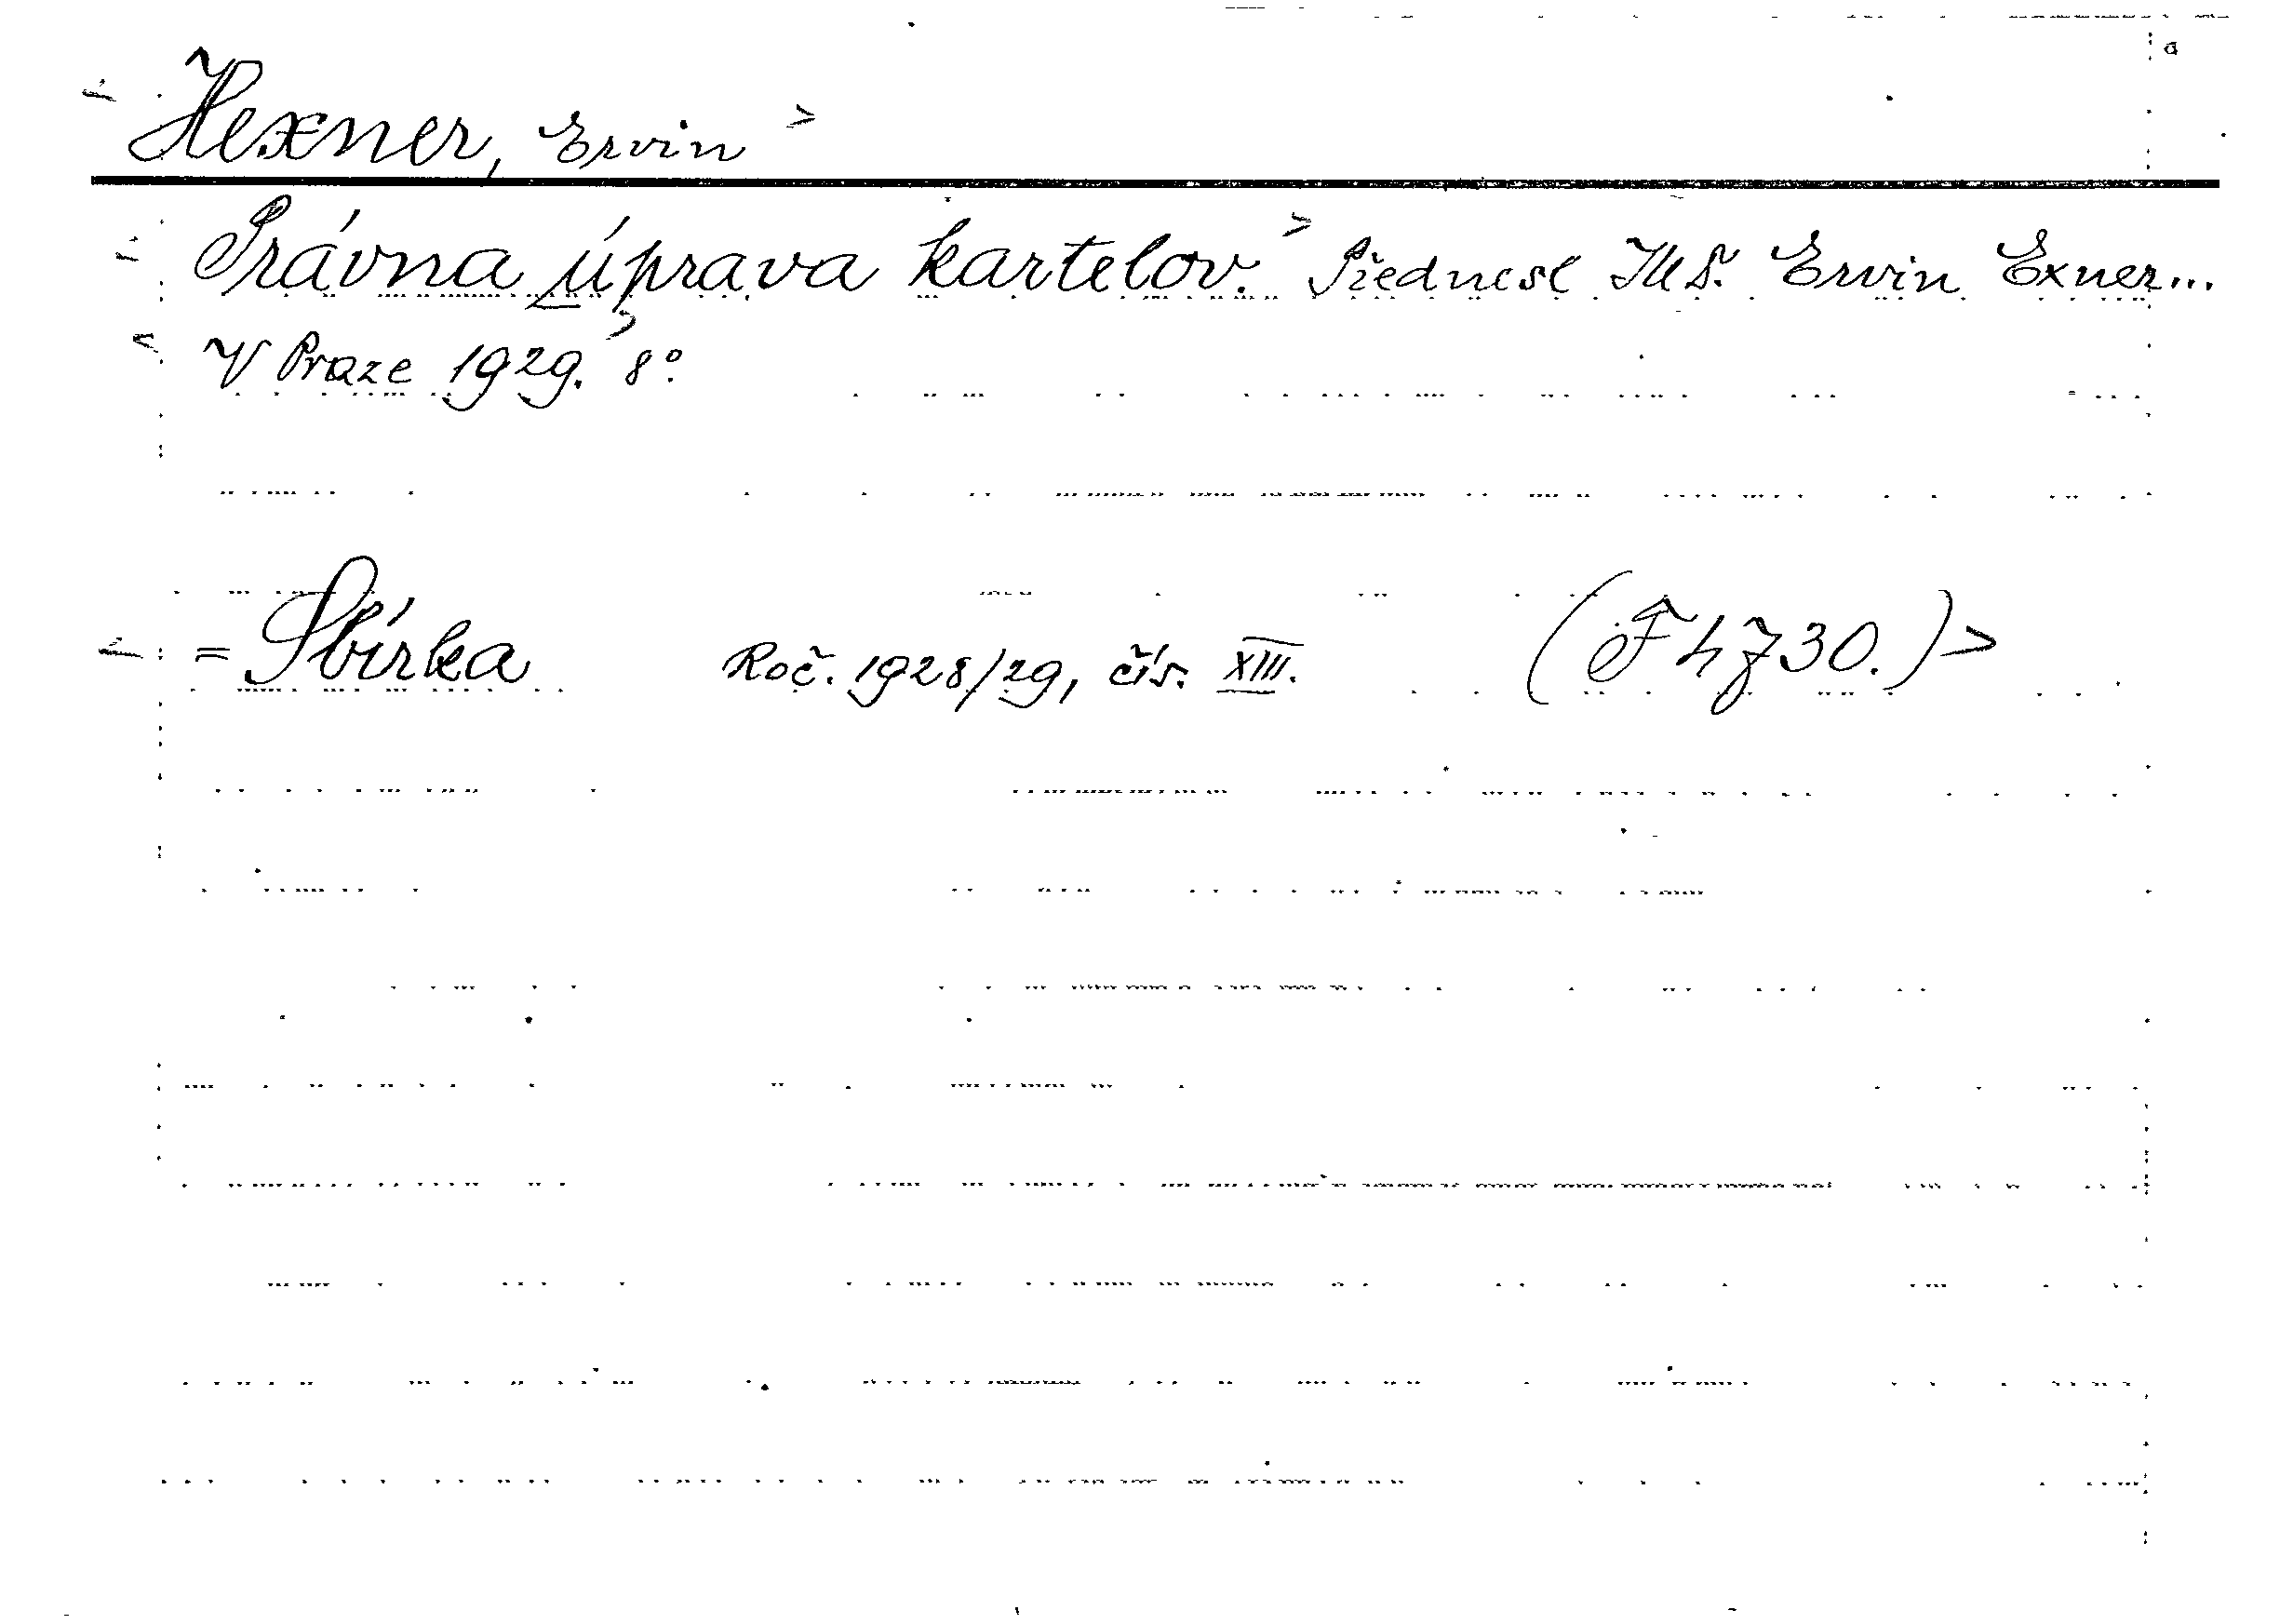 Hexner, Ervin
Právna úprava kartelov. Přednesl JUD. Ervin Exner...
V Praze 1929. 8°.
= Sbírka Roč. 1928/29, čís. XIII. (F h 730.)